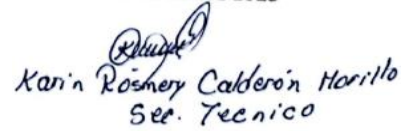 Karin Rosmery Calderón Morillo
Sec. Tecnico